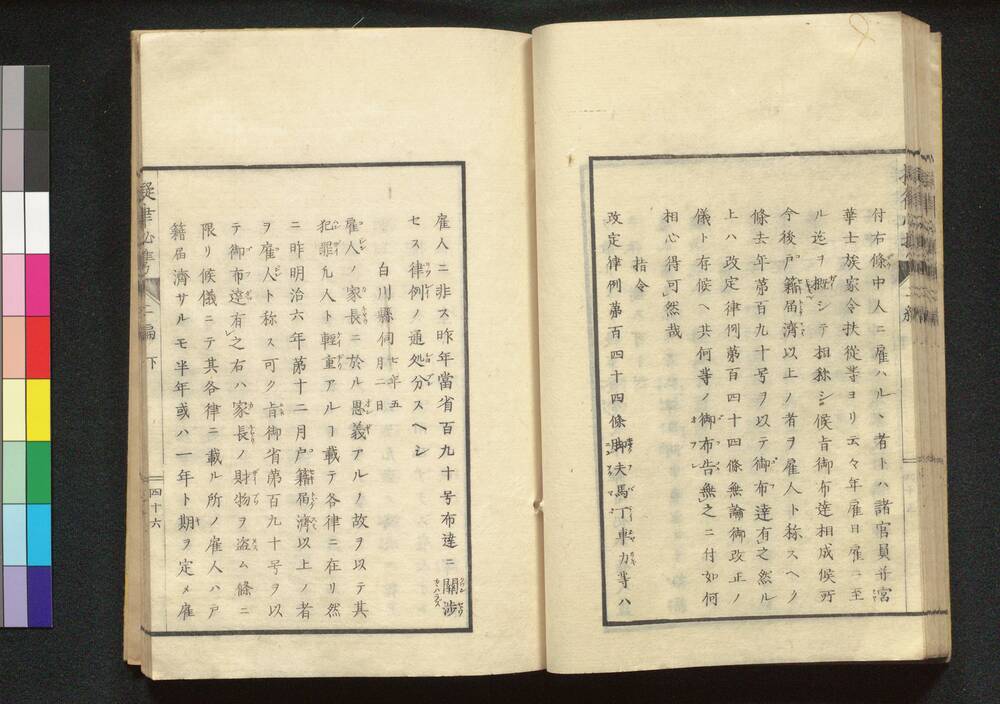 付右條中人ニ雇ハルヽ者トハ諸官員并宮
華士族家令扶從等ヨリ云々年雇日雇ニ至
ル迄ヲ概シテ相称シ候旨御布達相成候所
今後戸籍届濟以上ノ者ヲ雇人ト称スヘク
條去年第百九十号ヲ以テ御布達有之然ル
上ハ改定律例第百四十四條無論御改正ノ
儀ト存候ヘ共何等ノ御布告無之ニ付如何
相心得可然哉
指令
改定律例第百四十四條脚夫馬丁車力等ハ
雇人ニ非ス昨年當省百九十号布達ニ關渉
セス律例ノ通処分スヘシ
白川縣伺 七年五月二日
雇人ノ家長ニ於ル恩義アルノ故ヲ以テ其
犯罪凢人ト軽重アルヿ載テ各律ニ在リ然
ニ昨明治六年第十二月戸籍届濟以上ノ者
ヲ雇人ト称ス可ク旨御省第百九十号ヲ以
テ御布達有之右ハ家長ノ財物ヲ盗ム條ニ
限リ候儀ニテ其各律ニ載ル所ノ雇人ハ戸
籍届濟サルモ半年或ハ一年ト期ヲ定メ雇
擬律必携 二編 下
四十六